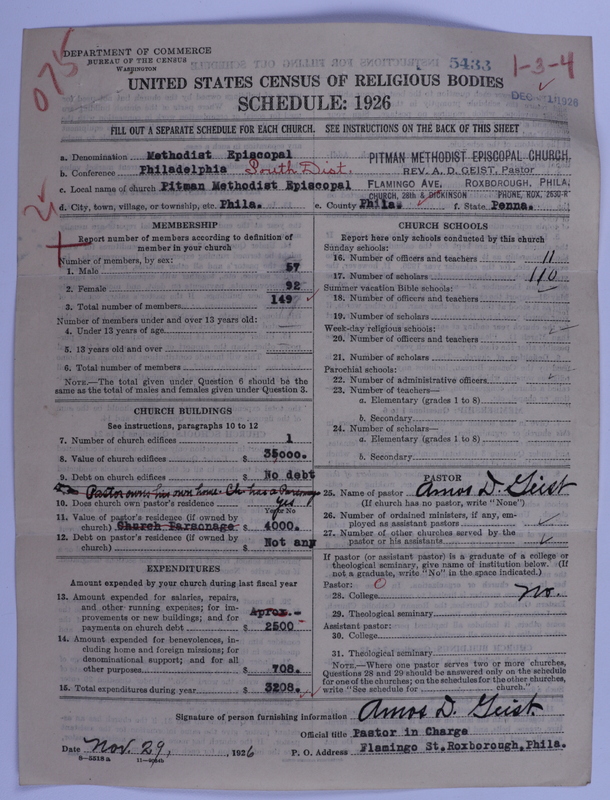 DEPARTMENT OF COMMERCE
BUREAU OF THE CENSUS
WASHINGTON
075
5433
1-3-4
UNITED STATES CENSUS OF RELIGIOUS BODIES
DEC 1 1926
SCHEDULE: 1926
FILL OUT A SEPARATE SCHEDULE FOR EACH CHURCH. SEE INSTRUCTIONS ON THE BACK OF THIS SHEET
a. Denomination Methodist Episcopal
b. Conference Philadelphia South Dist.
c. Local name of church Pitman Methodist Episcopal
d. City, town, village, or township, etc. Phila. e. County Phila. f. State Penna.
PITMAN METHODIST EPISCOPAL CHURCH,
REV. A. D. GEIST, Pastor
FLAMINGO AVE, ROXBOROUGH, PHILA,
CHURCH, 28th & DICKINSON PHONE, ROX. 2630-R
MEMBERSHIP
Report number of members according to definition of
member in your church
Number of members, by sex:
1. Male 57
2. Female 92
3. Total number of members 149
Number of members under and over 13 years old:
4. Under 13 years of age
5. 13 years old and over
6. Total number of members
NOTE.—The total given under Question 6 should be the
same as the total of males and females given under Question 3.
CHURCH BUILDINGS
See instructions, paragraphs 10 to 12
7. Number of church edifices 1
8. Value of church edifices $ 35000.
9. Debt on church edifices $ No debt
Pastor owns his own home. Ch. has a Parsonage
10. Does church own pastor's residence yes
Yes or No
11. Value of pastor's residence (if owned by
church) Church Parsonage $ 4000.
12. Debt on pastor's residence (if owned by
church) $ Not any
EXPENDITURES
Amount expended by your church during last fiscal year
13. Amount expended for salaries, repairs,
and other running expenses; for im-
provements or new buildings; and for
payments on church debt $ Aprox.- 2500
14. Amount expended for benevolences, in-
cluding home and foreign missions; for
denominational support; and for all
other purposes $ 708.
15. Total expenditures during year $ 3208.
CHURCH SCHOOLS
Report here only schools conducted by this church
Sunday schools:
16. Number of officers and teachers 11
17. Number of scholars 110
Summer vacation Bible schools:
18. Number of officers and teachers
19. Number of scholars
Week-day religious schools:
20. Number of officers and teachers
21. Number of scholars
Parochial schools:
22. Number of administrative officers
23. Number of teachers—
a. Elementary (grades 1 to 8)
b. Secondary
24. Number of scholars—
a. Elementary (grades 1 to 8)
b. Secondary
PASTOR
25. Name of pastor Amos D. Geist
(If church has no pastor, write "None")
26. Number of ordained ministers, if any, em-
ployed as assistant pastors
27. Number of other churches served by the
pastor or his assistants
If pastor (or assistant pastor) is a graduate of a college or
theological seminary, give name of institution below. (If
not a graduate, write "No" in the space indicated.)
Pastor: 0
28. College no.
29. Theological seminary
Assistant pastor:
30. College
31. Theological seminary
NOTE.—Where one pastor serves two or more churches,
Questions 28 and 29 should be answered only on the schedule
for one of the churches; on the schedules for the other churches,
write "See schedule for church."
Signature of person furnishing information Amos D. Geist
Official title Pastor in Charge
Date Nov. 29, 1926 P. O. Address Flamingo St. Roxborough, Phila.
8-5518 a